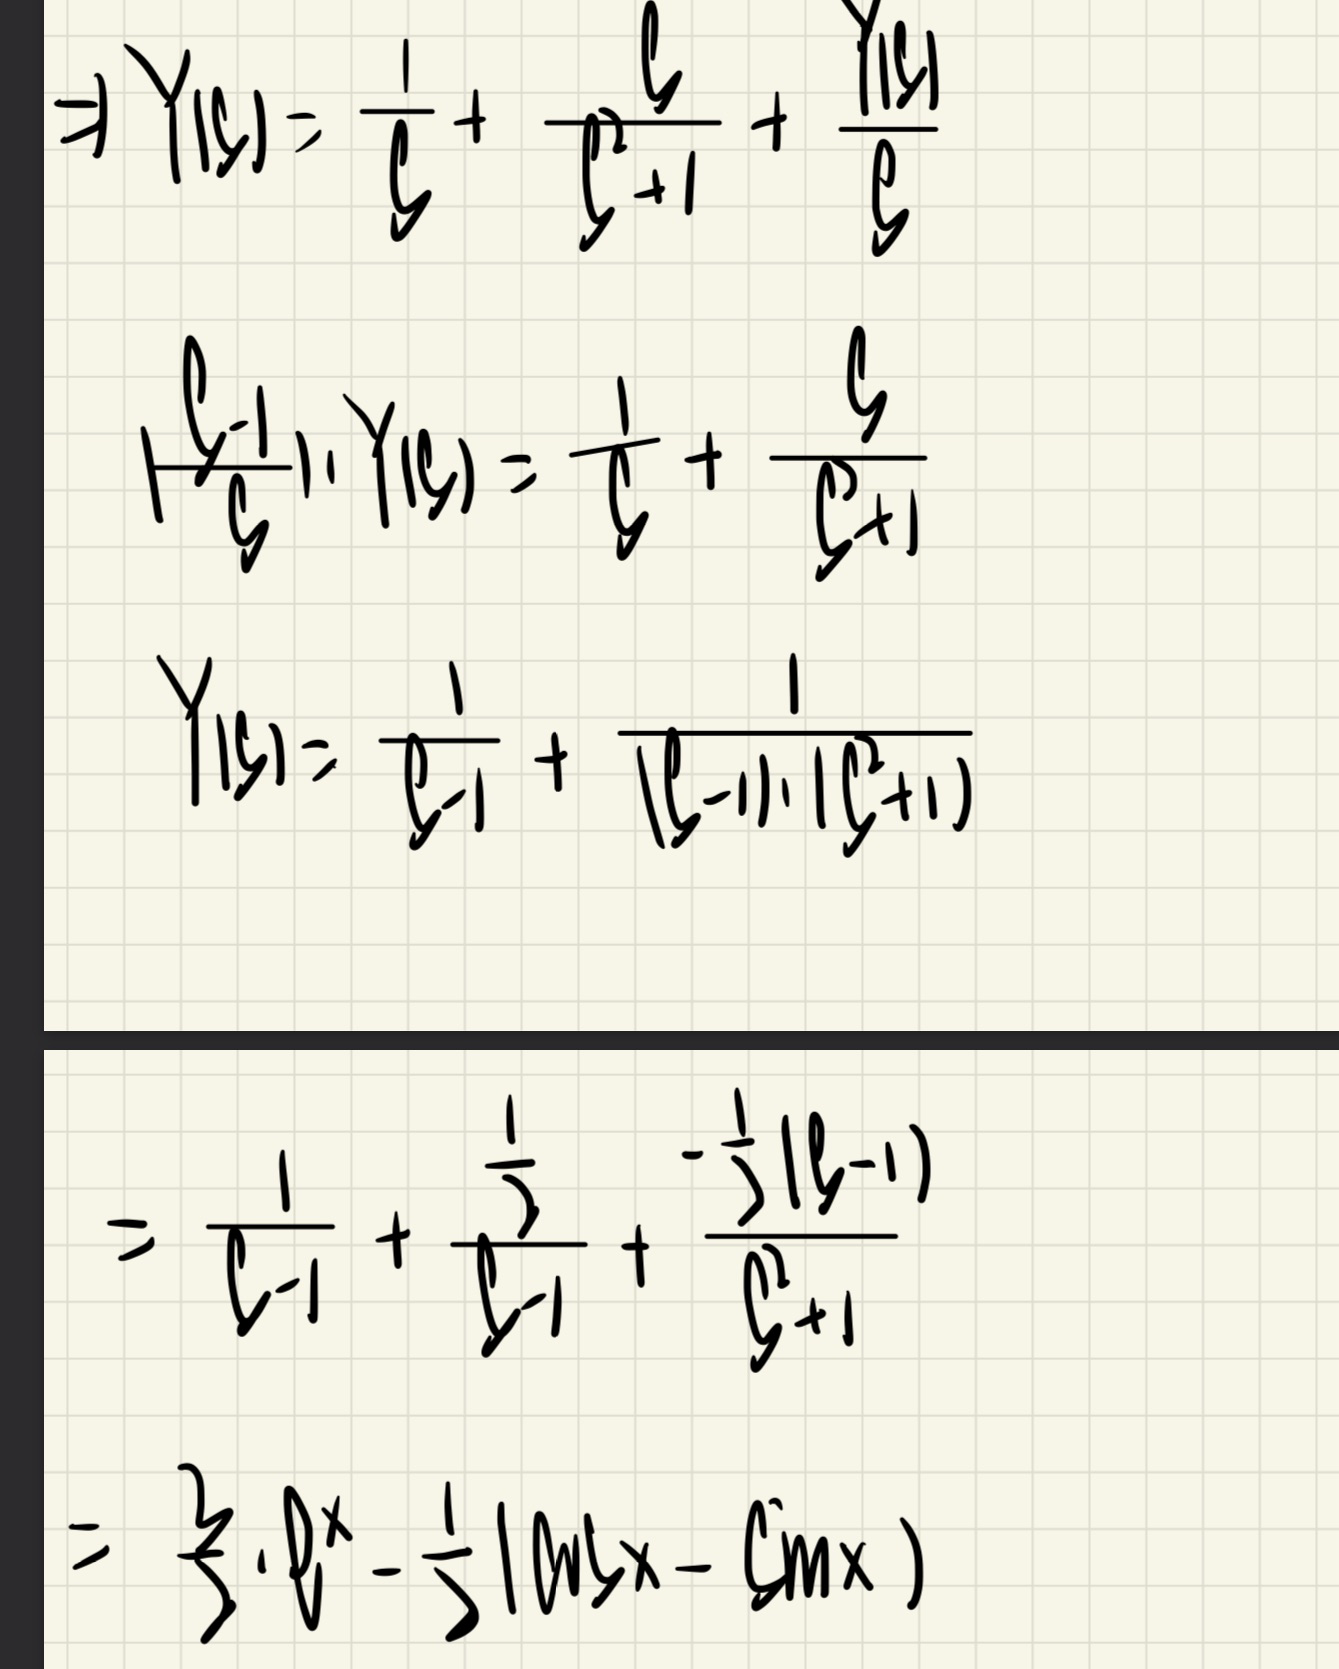 ⇒ Y(s) = 1/s + s/(s²+1) + Y(s)/s
((s-1)/s) · Y(s) = 1/s + s/(s²+1)
Y(s) = 1/(s-1) + 1/((s-1)·(s²+1))
= 1/(s-1) + (1/2)/(s-1) + (-1/2(s-1))/(s²+1)
= 3/2 · eˣ - 1/2 (cos x - sin x)